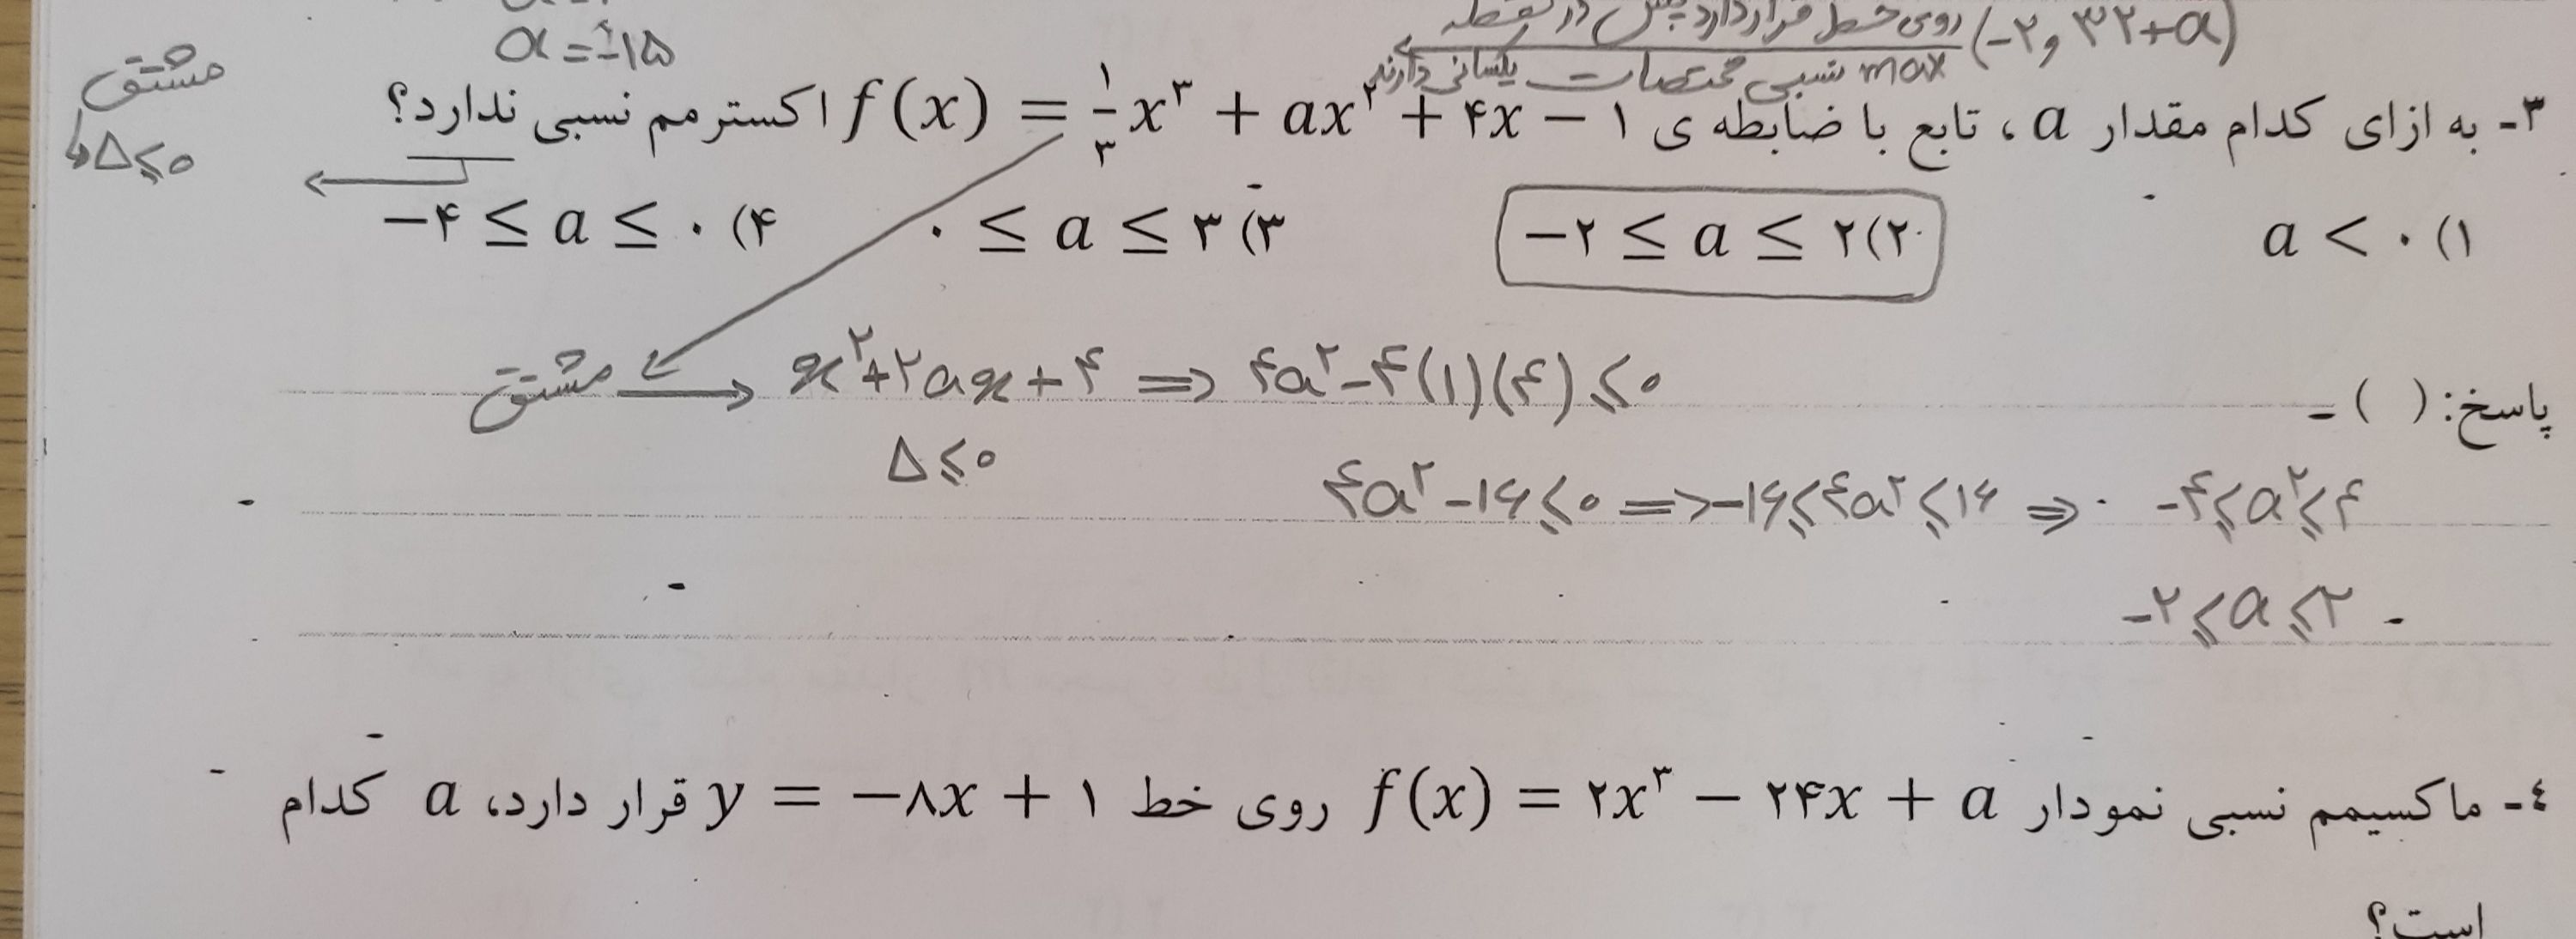 روی خط قرار دارد پس در نقطه (-۲ و ۳۲+a)
max نسبی مختصات یکسانی دارند
a = -۱۵
مشتق
Δ ≤ ۰
۳- به ازای کدام مقدار a ، تابع با ضابطه ی f(x) = ۱/۳ x³ + ax² + ۴x − ۱ اکسترمم نسبی ندارد؟
۱) a < ۰ ۲) −۲ ≤ a ≤ ۲ ۳) ۰ ≤ a ≤ ۳ ۴) −۴ ≤ a ≤ ۰
پاسخ: ( ) -
مشتق → x² + ۲ax + ۴ ⇒ ۴a² - ۴(۱)(۴) ≤ ۰
Δ ≤ ۰
۴a² - ۱۶ ≤ ۰ ⇒ -۱۶ ≤ ۴a² ≤ ۱۶ ⇒ -۴ ≤ a² ≤ ۴
-۲ ≤ a ≤ ۲
٤- ماکسیمم نسبی نمودار f(x) = ۲x³ − ۲۴x + a روی خط y = −۸x + ۱ قرار دارد، a کدام
است؟